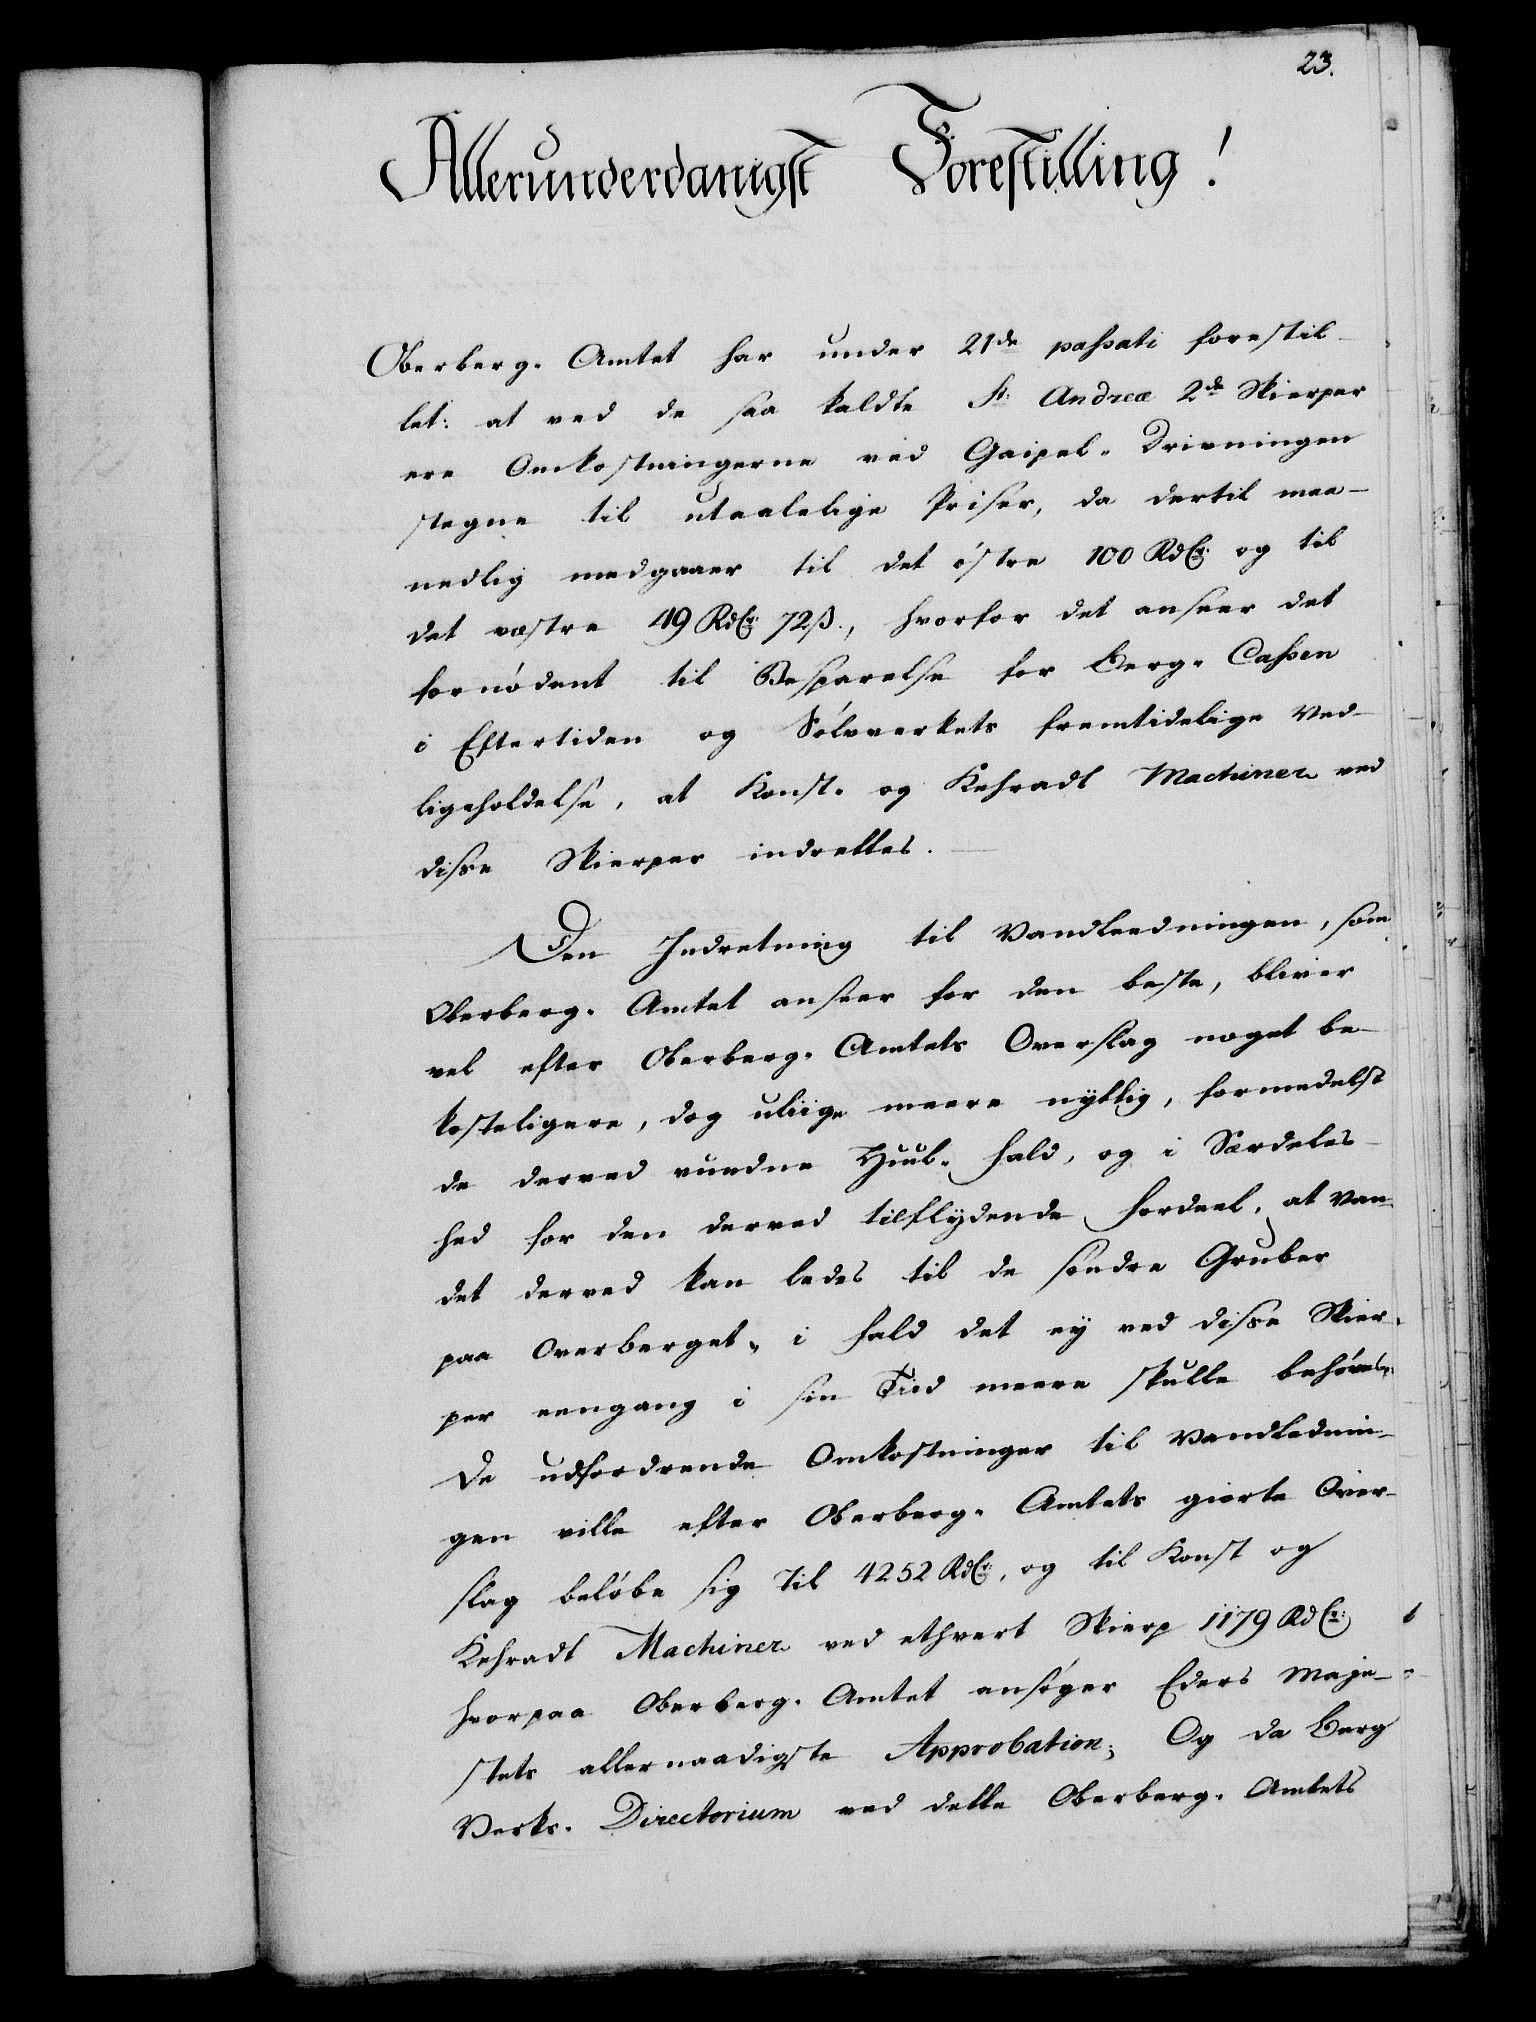 23.
Allerunderdanigst Forestilling!
Oberberg-Amtet har under 21de passati forestil-
let: at ved de saa kaldte St: Andreæ 2de Skierper
ere Omkostningerne ved Gaipel-Drivningen
stegne til utaalelige Priser, da dertil maa-
nedlig medgaaer til det østre 100 Rdlr: og til
det vestre 49 Rdlr: 72 ß., hvorfor det anseer det
fornødent til Besparelse for Berg-Cassen
i Eftertiden og Sølvverkets fremtidelige Ved-
ligeholdelse, at Konst- og Kehradt Machiner ved
disse Skierper indrettes.
Den Indretning til Vandleedningen, som
Oberberg-Amtet anseer for den beste, bliver
vel efter Oberberg-Amtets Overslag noget be-
kosteligere, dog uliige meere nyttig, formedelst
de derved vundne Hiul-Fald, og i Særdeles-
hed for den derved tilflydende Fordeel, at Van-
det derved kan ledes til de søndre Gruber
paa Overberget, i Fald det ey ved disse Skier-
per eengang i sin Tiid meere skulle behøves.
De udfordrende Omkostninger til Vandlednin-
gen ville efter Oberberg-Amtets giorte Over-
slag beløbe sig til 4252 Rdlr:, og til Konst og
Kehradt Machiner ved ethvert Skierp 1179 Rdlr:
hvorpaa Oberberg-Amtet ansøger Eders Maje-
stets allernaadigste Approbation; Og da Berg
Verks-Directorium ved dette Oberberg-Amtets